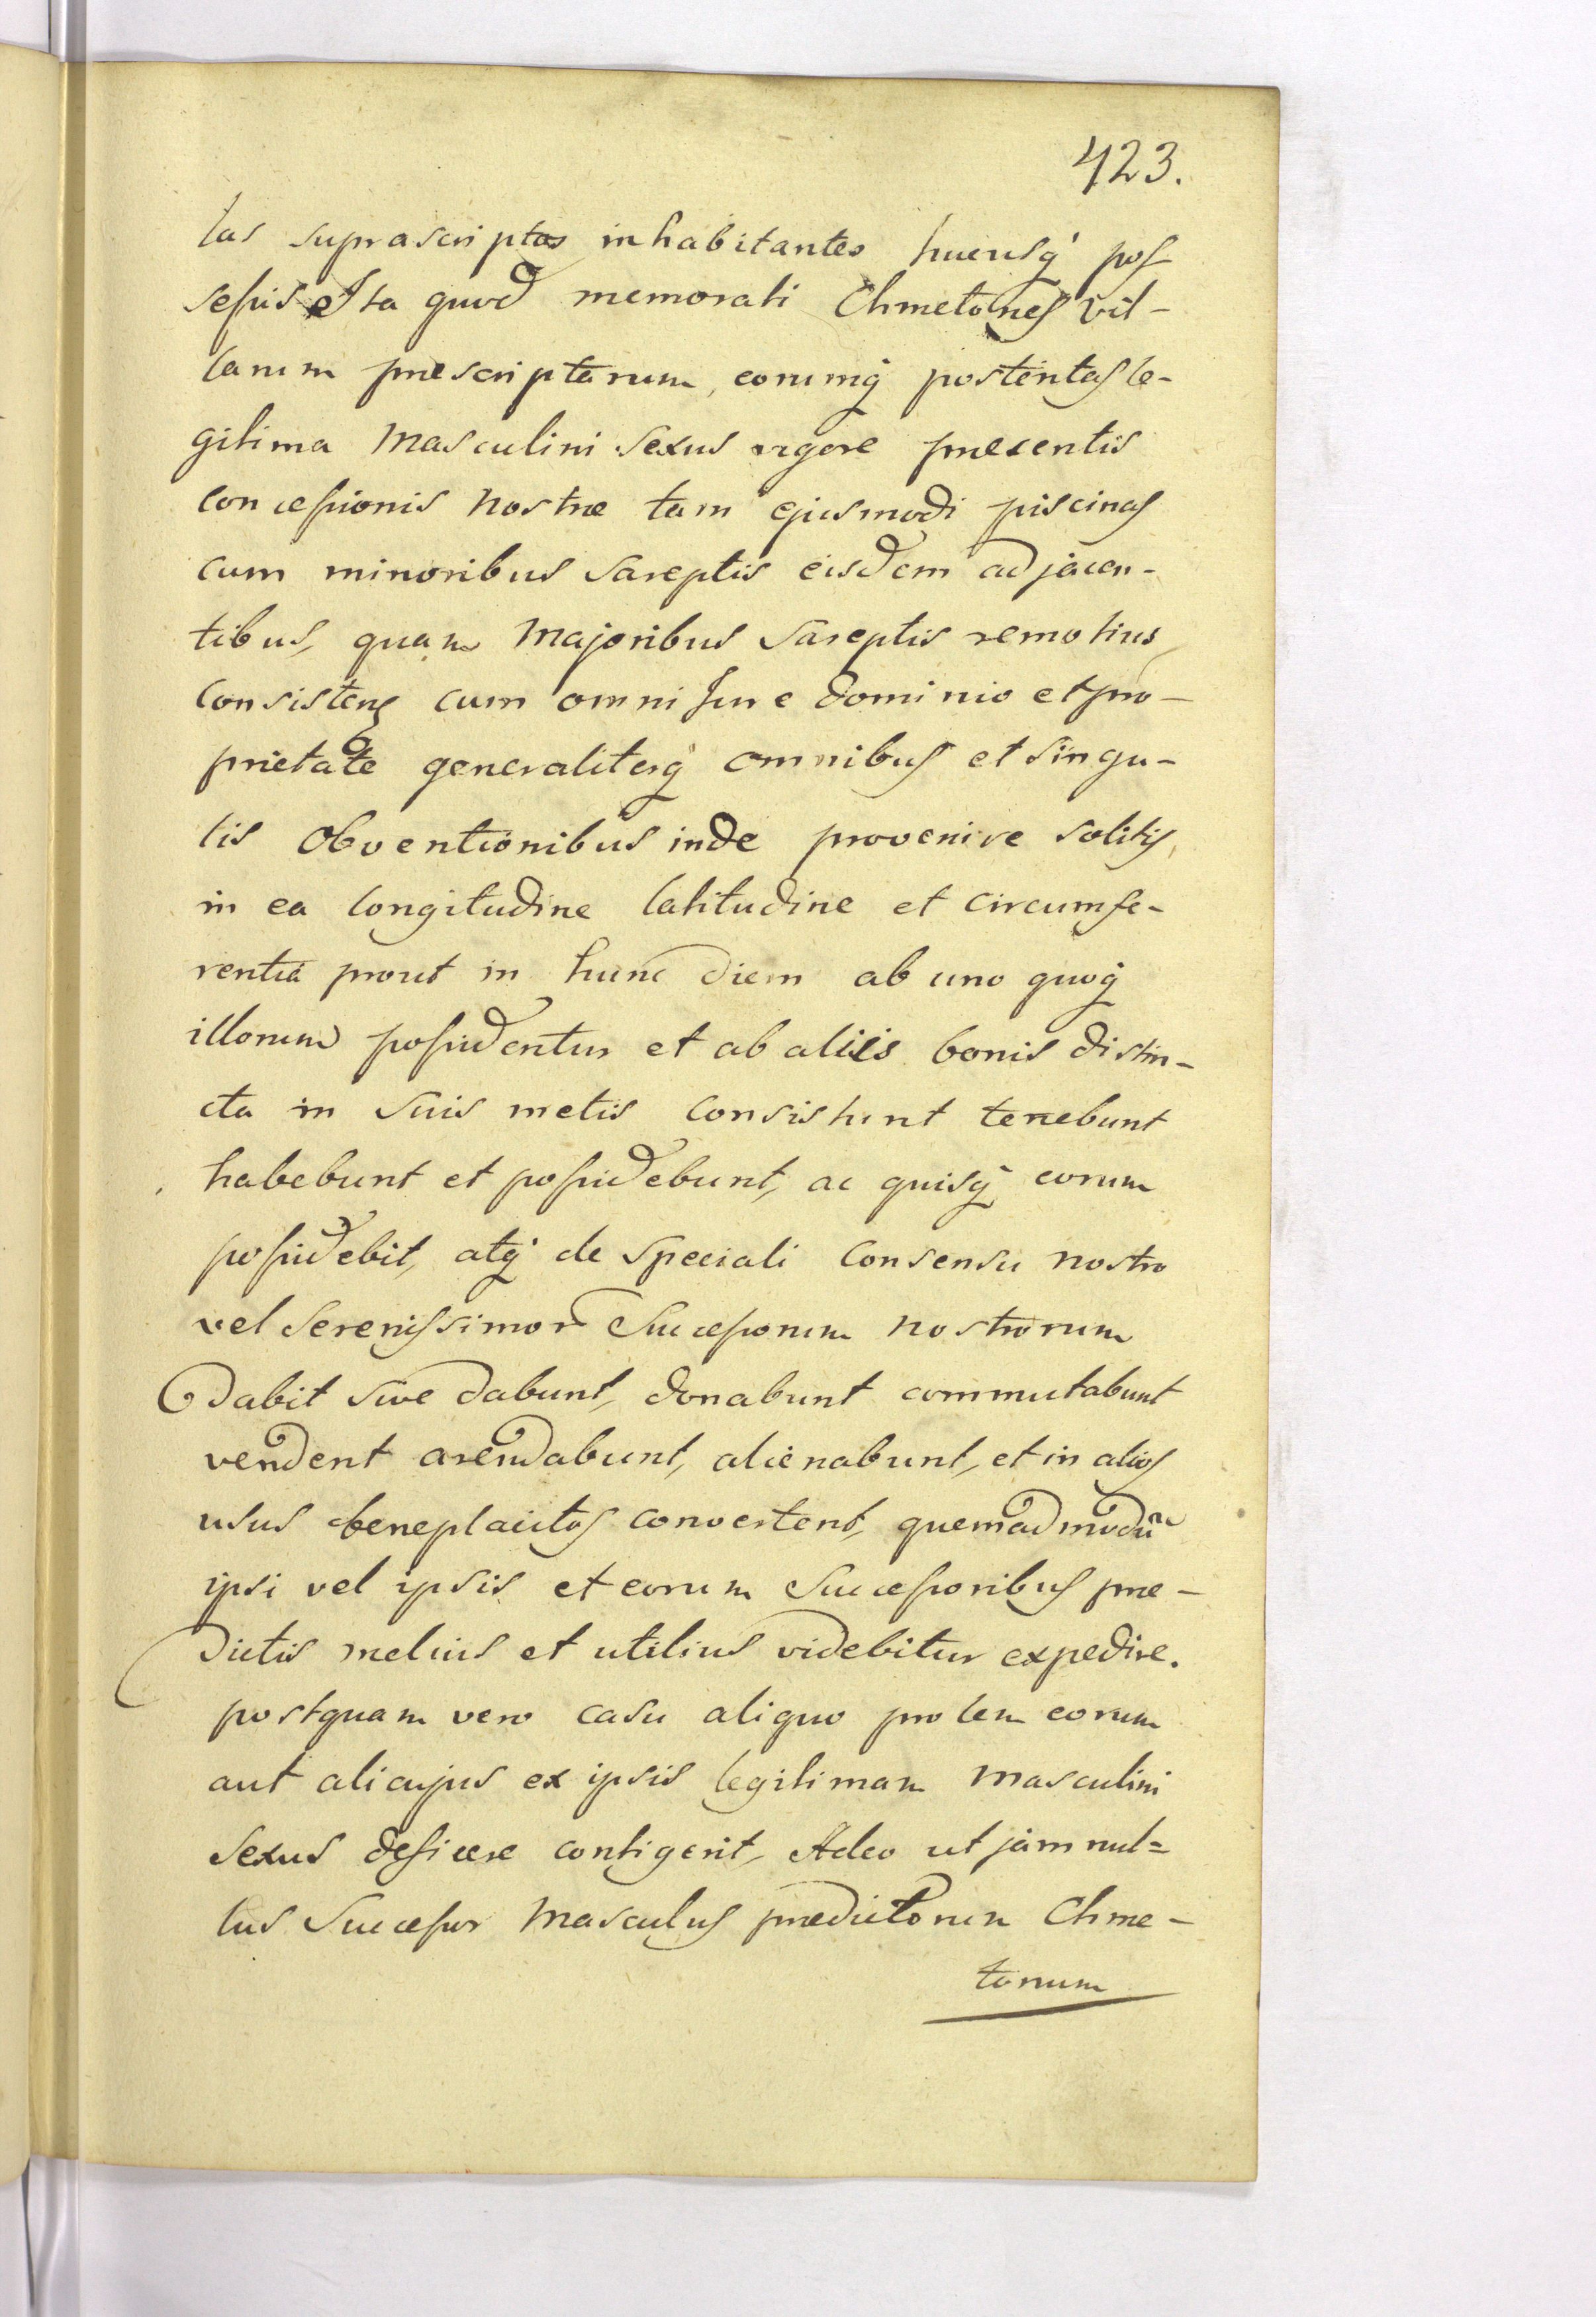 423.
las suprascriptas inhabitantes hucusq́ pos
sessis Ita quod memorati Chmetones vil-
larum prescriptarum, eorumq́ posteritas le-
gitima Masculini Sexus vigore presentis
concessionis Nostræ tam ejusmodi piscinas
cum minoribus Sareptis eisdem adjacen-
tibus, quam Majoribus Sareptis remotius
consistens cum omni Jure dominio et pro-
prietate generaliterq́ omnibus et singu-
lis Obventionibus inde provenire solitis,
in ea longitudine latitudine et circumfe-
rentia prout in hunc diem ab uno quoq́
illorum possidentur et ab aliis bonis distin-
cta in Suis metis consistunt tenebunt
habebunt et possidebunt, ac quisq́ eorum
possidebit, atq́ de Speciali Consensu nostro
vel Serenissimor Successorum Nostrorum
Dabit sive dabunt, donabunt commutabunt
vendent arendabunt, alienabunt, et in alios
usus beneplacitos convertent, quemadmodū
ipsi vel ipsis et eorum Successoribus præ-
dictis melius et utilius videbitur expedire.
postquam vero casu aliquo prolem eorum
aut alicujus ex ipsis legitimam Masculini
Sexus deficere contigerit, Adeo ut jam nul=
lus Successor Masculus prædictorum Chme-
tonum